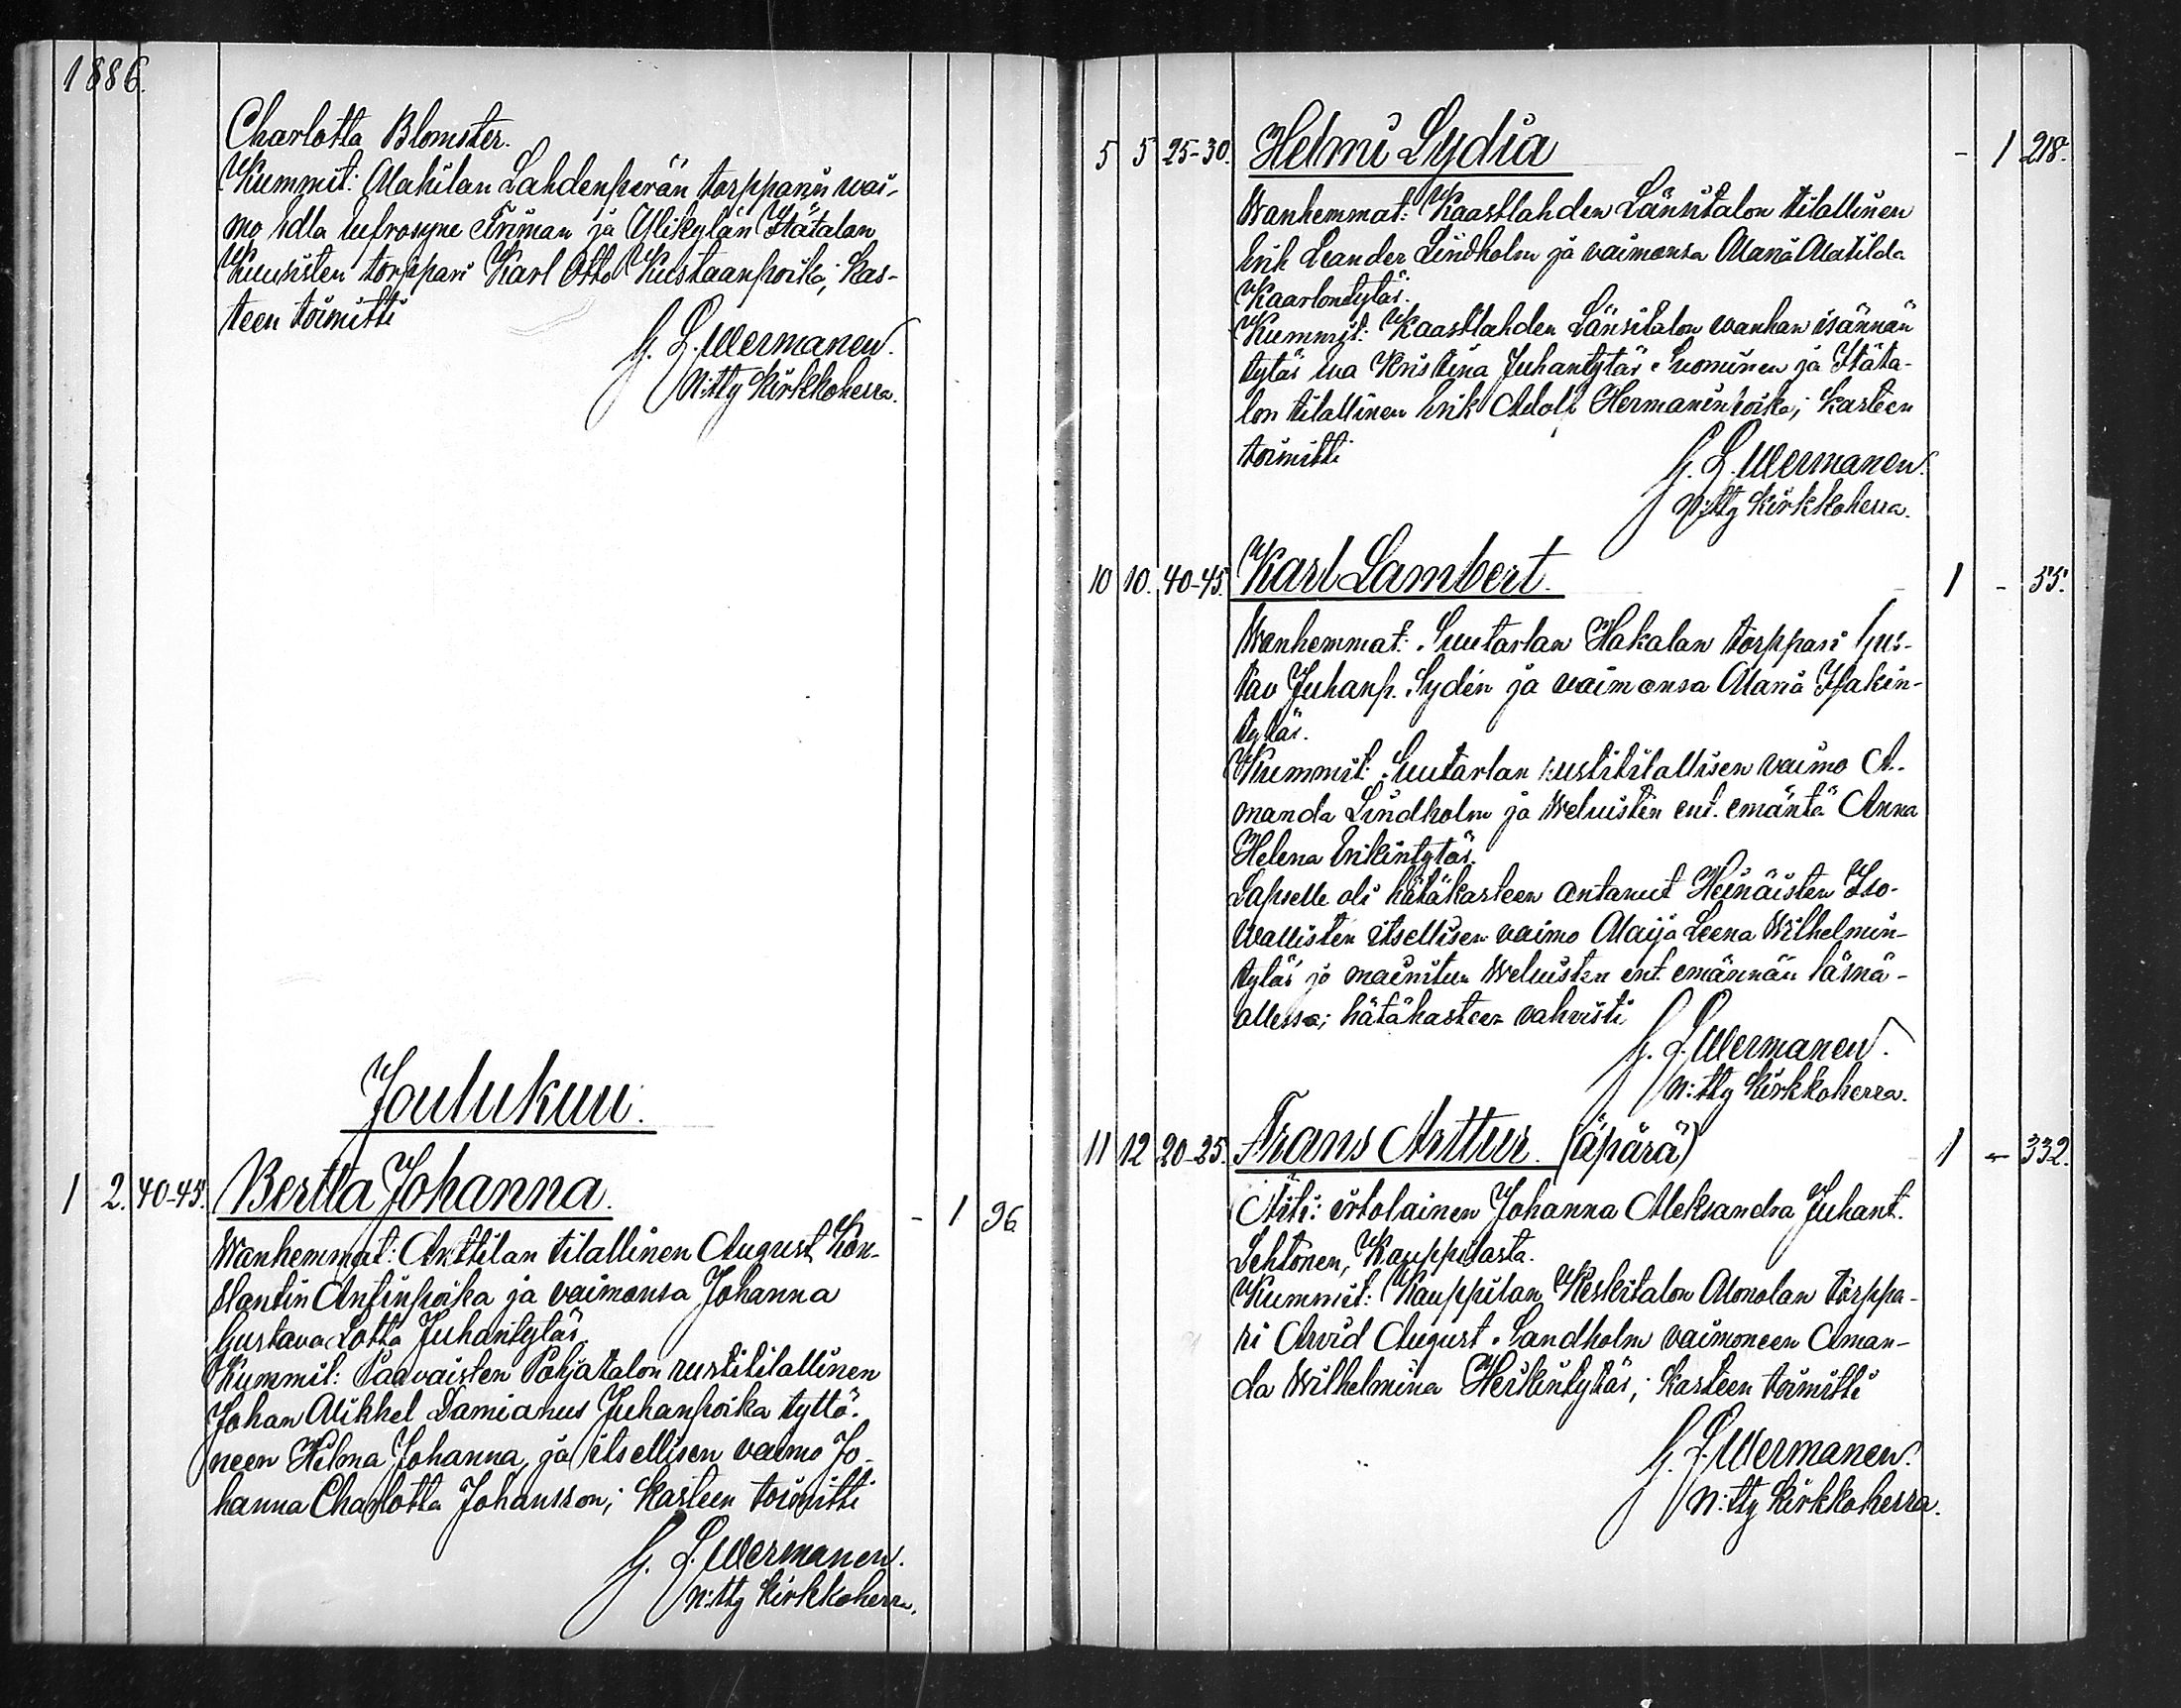 1886.
Charlotta Blomster.
Kummit: Makilan Lahdenperän torpparin vai-
mo Edla Eufrosyne Friman ja Ylikylän Itätalan
Kuusisten torppari Karl Otto Kustaanpoika; kas-
teen toimitti
G. L. Mermanen.
n:tty kirkkoherra.
Joulukuu.
1 2. 40-45. Bertta Johanna. - 1 96
Wanhemmat: Anttilan tilallinen August Kon-
stantin Antinpoika ja vaimonsa Johanna
Gustava Lotta Juhantytär.
Kummit: Paavaisten Pohjatalon rustitilallinen
Johan Mikhel Damianus Juhanpoika tyttö-
neen Hilma Johanna, ja itsellisen vaimo Jo-
hanna Charlotta Johansson; kasteen toimitti
G. L. Mermanen.
n:tty kirkkoherra.
5 5 25-30. Helmi Lydia - 1 218.
Wanhemmat: Kaastlahden Länsitalon tilallinen
Erik Leander Lindholm ja vaimonsa Maria Matilda
Kaarlontytär.
Kummit: Kaastlahden Länsitalon vanhan isännän
tytär Eva Kristina Juhantytär Suominen ja Itäta-
lon tilallinen Erik Adolf Hermaninpoika; kasteen
toimitti
G. L. Mermanen.
n:tty kirkkoherra.
10 10. 40-45. Karl Lambert. 1 - 55.
Wanhemmat: Suutarlan Hakalan torppari Gus-
tav Juhanp. Sydén ja vaimonsa Maria Isakin-
tytär.
Kummit: Suutarlan rustitilallisen vaimo A-
manda Lindholm ja Weluisten ent. emäntä Anna
Helena Erikintytär.
Lapselle oli hätäkasteen antanut Heinäisten Iso-
Wallisten itsellisen vaimo Maija Leena Wilhelmin-
tytär jo mainitun Weluisten ent. emännän läsnä-
ollessa; hätäkasteen vahvisti
G. L. Mermanen.
n:tty kirkkoherra.
11 12 20-25. Frans Arttur. (äpärä) 1 - 332.
Äiti: irtolainen Johanna Aleksandra Juhant.
Lehtonen, Kauppilasta.
Kummit: Kauppilan Keskitalon Monolan torppa-
ri Arvid August Sandholm vaimoneen Aman-
da Wilhelmina Heikintytär; kasteen toimitti
G. L. Mermanen.
n:tty kirkkoherra.